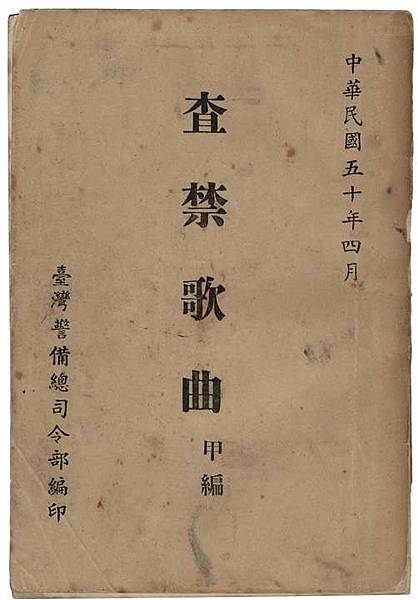 中華民國五十年四月
查禁歌曲
甲編
臺灣警備總司令部編印